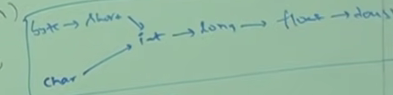 1)
byte → short → int → long → float → double
char